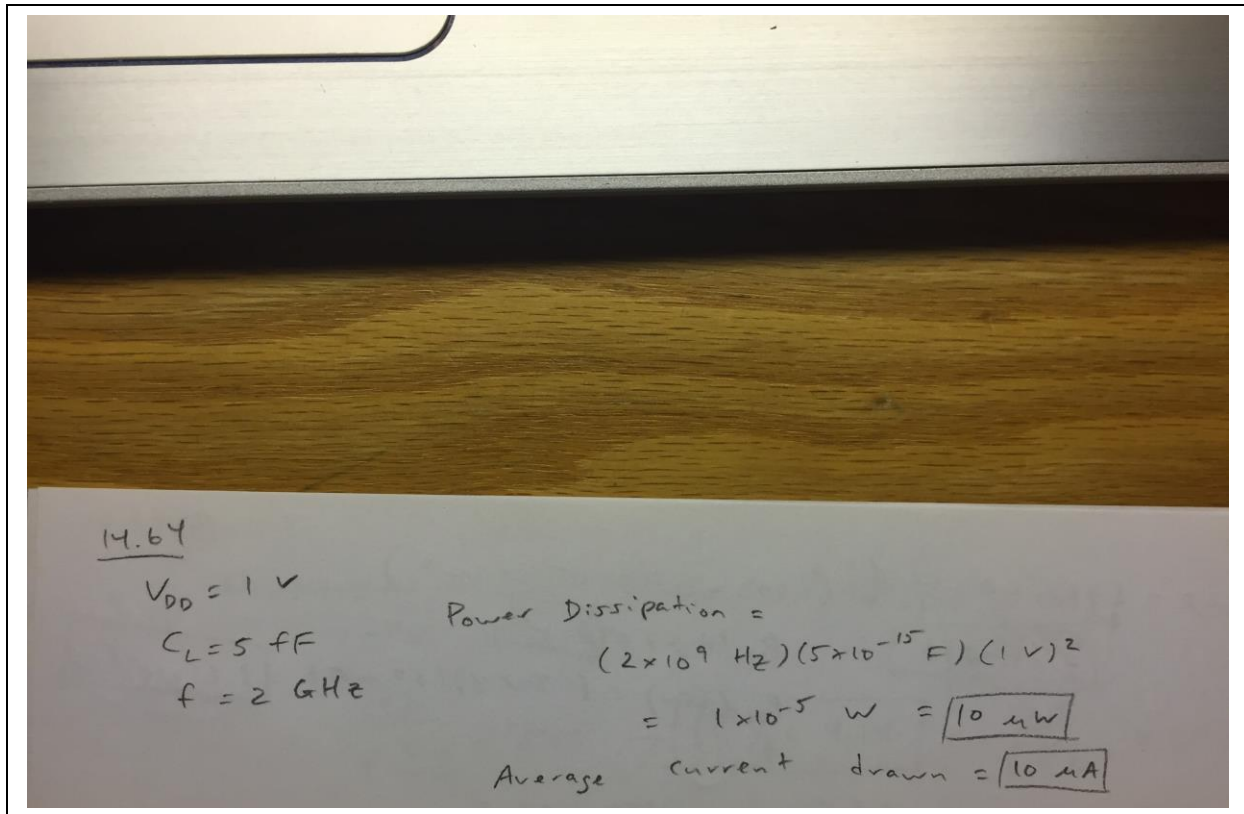 14.64
V_DD = 1 V
C_L = 5 fF
f = 2 GHz
Power Dissipation =
(2×10⁹ Hz)(5×10⁻¹⁵ F)(1 V)²
= 1×10⁻⁵ W = 10 μW
Average current drawn = 10 μA